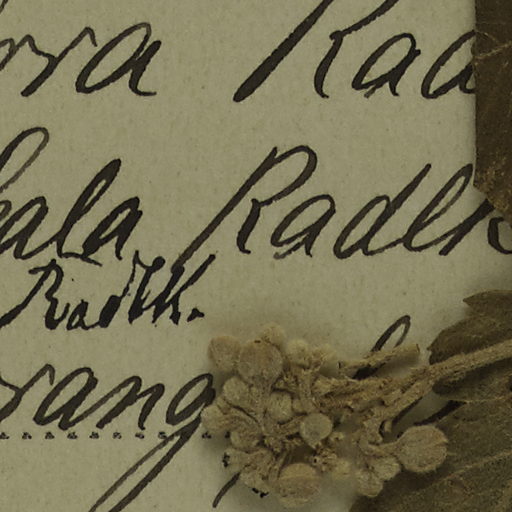 rra Rad
kala Radlk
Radlk.
rang